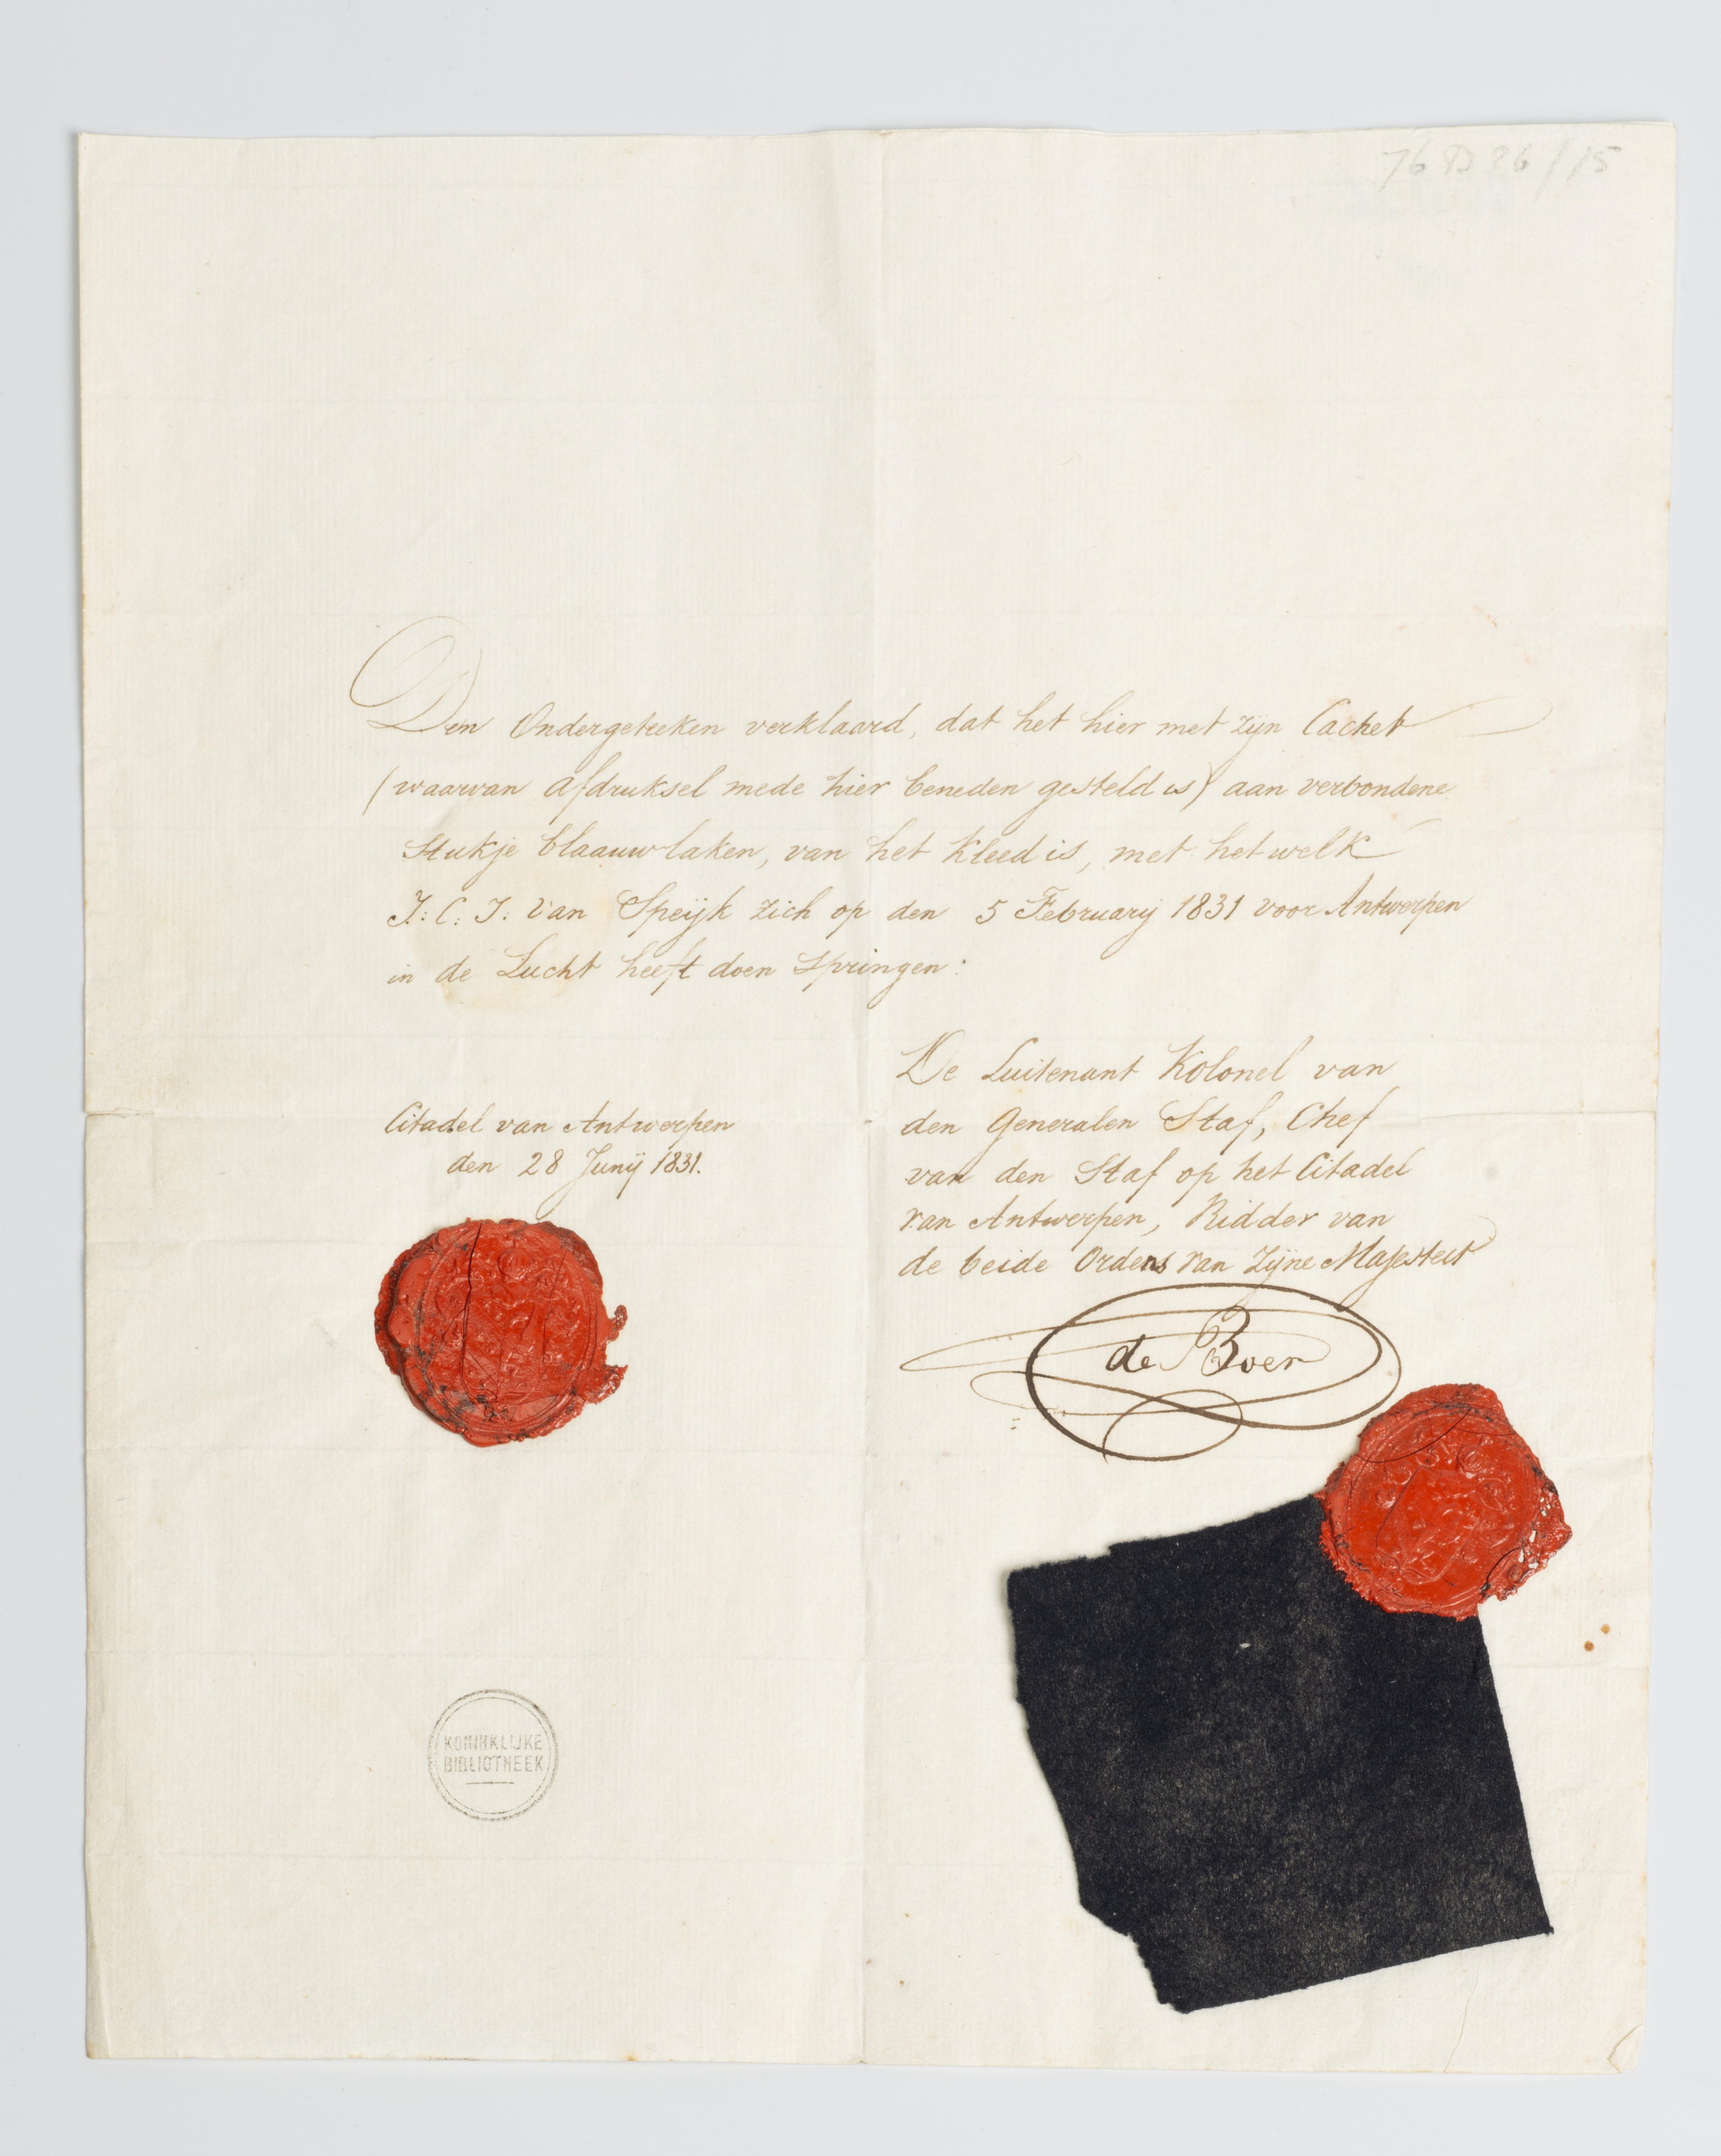 76 D 26 / 15
Den Ondergeteeken verklaard, dat het hier met zijn Cachet
(waarvan afdruksel mede hier beneden gesteld is) aan verbondene
Stukje blaauw laken, van het Kleed is, met het welk
J: C: J: Van Speijk zich op den 5 Februarij 1831 voor Antwerpen
in de Lucht heeft doen springen:
Citadel van Antwerpen
den 28 Junij 1831.
De Luitenant Kolonel van
den Generalen Staf, Chef
van den Staf op het Citadel
van Antwerpen, Ridder van
de beide Ordens van Zijne Majesteit
de Boer
KONINKLIJKE
BIBLIOTHEEK